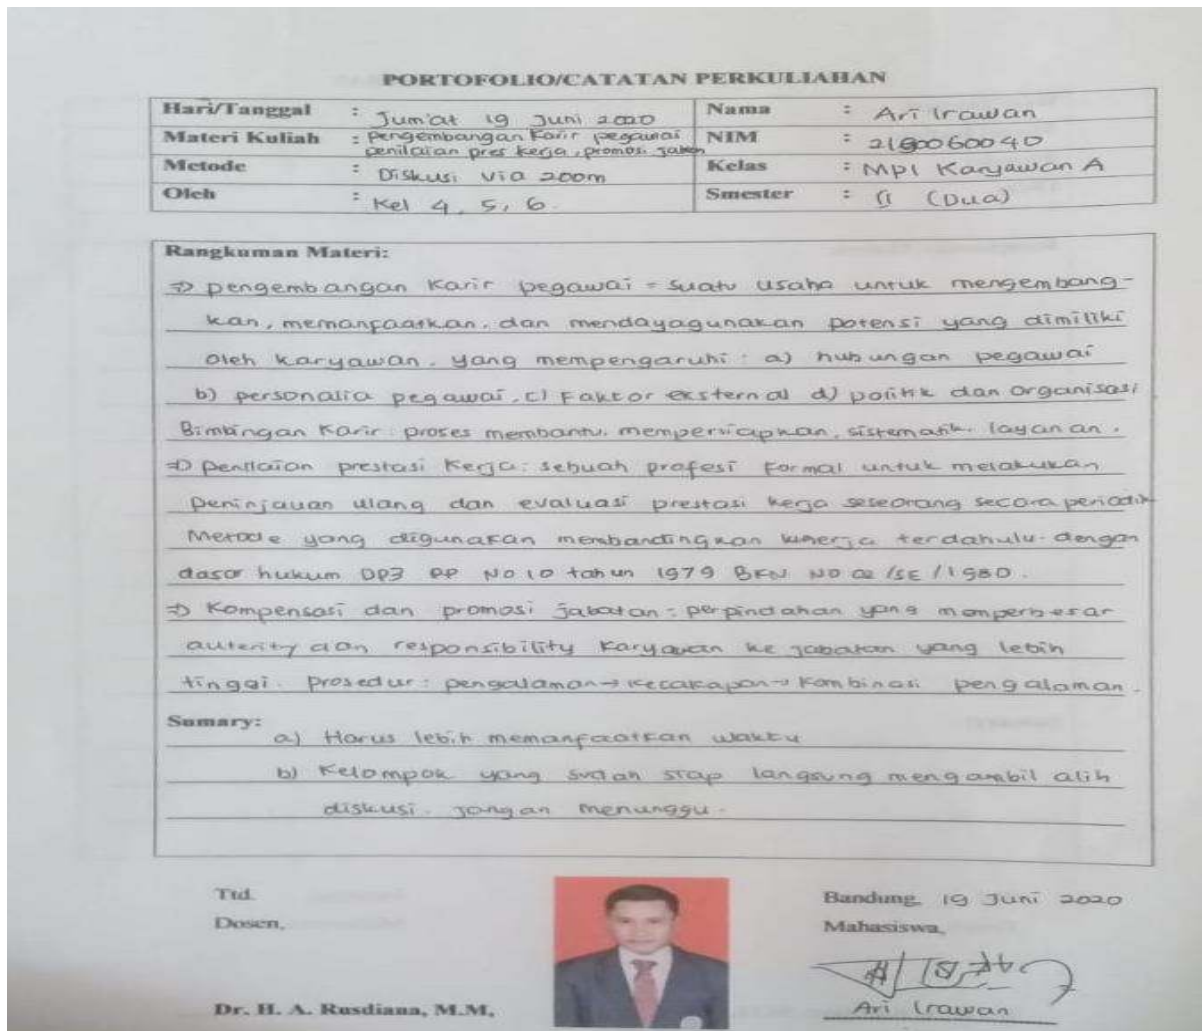 PORTOFOLIO/CATATAN PERKULIAHAN
Hari/Tanggal : Jum'at 19 Juni 2020 Nama : Ari Irawan
Materi Kuliah : Pengembangan Karir pegawai NIM :
penilaian pres kerja, promosi jabatn
Metode : Diskusi via zoom Kelas : MPI Karyawan A
Oleh : Kel 4, 5, 6. Smester : II (Dua)
Rangkuman Materi:
⇒ pengembangan Karir pegawai = suatu usaha untuk mengembang-
kan, memanfaatkan, dan mendayagunakan potensi yang dimiliki
oleh karyawan. yang mempengaruhi : a) hubungan pegawai
b) personalia pegawai, c) Faktor eksternal d) politik dan organisasi
Bimbingan Karir : proses membantu, mempersiapkan, sistematik, layanan.
⇒ penilaian prestasi kerja : sebuah profesi formal untuk melakukan
peninjauan ulang dan evaluasi prestasi kerja seseorang secara periodik
Metode yang digunakan membandingkan kinerja terdahulu dengan
dasar hukum DP3 PP No 10 tahun 1979 BKN NO 02/SE/1980.
⇒ Kompensasi dan promosi jabatan : perpindahan yang memperbesar
auterity dan responsibility karyawan ke jabatan yang lebih
tinggi. prosedur : pengalaman → kecakapan → kombinasi pengalaman.
Sumary:
a) Harus lebih memanfaatkan waktu
b) Kelompok yang sudah siap langsung mengambil alih
diskusi. jangan menunggu.
Ttd. Bandung, 19 Juni 2020
Dosen, Mahasiswa,
Dr. H. A. Rusdiana, M.M, Ari Irawan